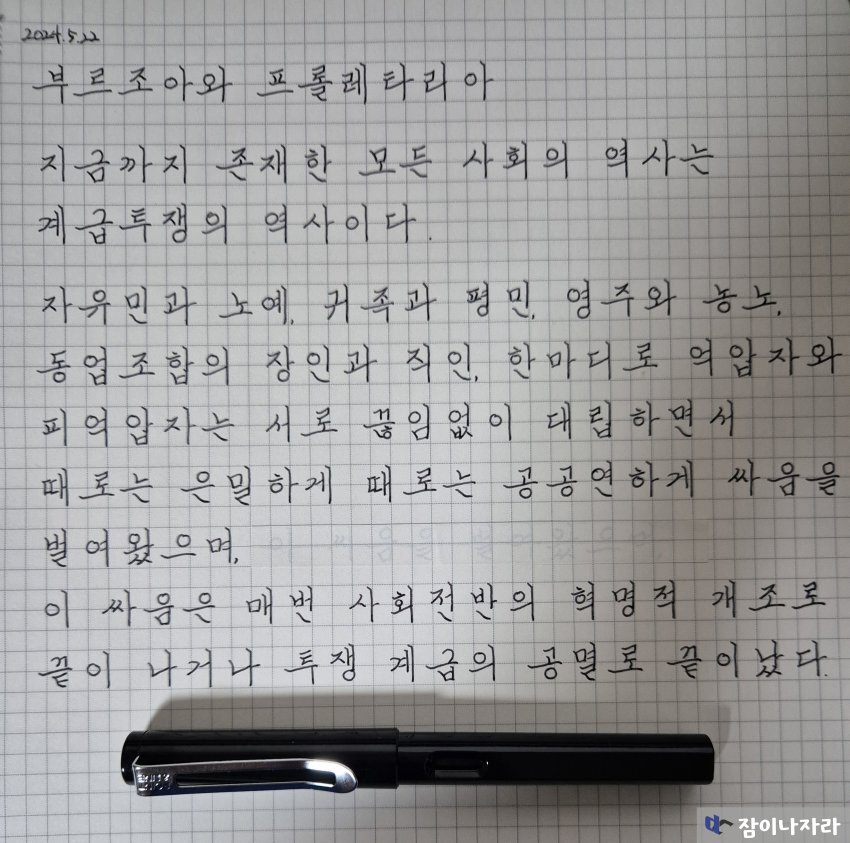 2024.5.22
부르조아와 프롤레타리아
지금까지 존재한 모든 사회의 역사는
계급투쟁의 역사이다.
자유민과 노예, 귀족과 평민, 영주와 농노,
동업조합의 장인과 직인, 한마디로 억압자와
피억압자는 서로 끊임없이 대립하면서
때로는 은밀하게 때로는 공공연하게 싸움을
벌여왔으며,
이 싸움은 매번 사회전반의 혁명적 개조로
끝이 나거나 투쟁 계급의 공멸로 끝이났다.
잠이나자라